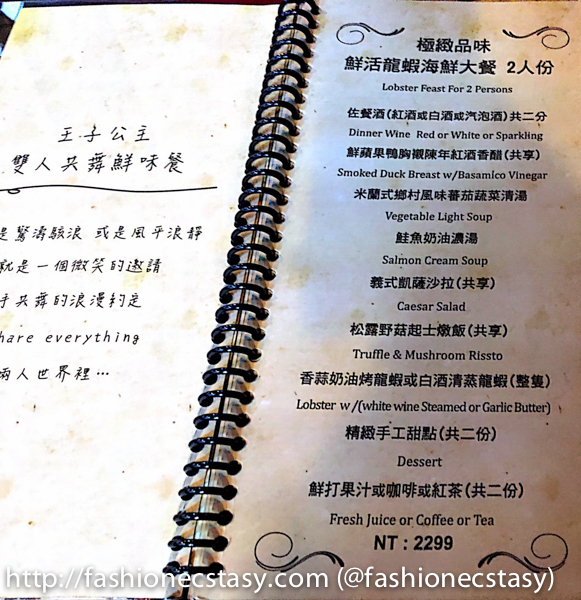 王子公主
雙人共舞鮮味餐
是驚濤駭浪 或是風平浪靜
就是一個微笑的邀請
手共舞的浪漫約定
hare everything
兩人世界裡…
極緻品味
鮮活龍蝦海鮮大餐 2人份
Lobster Feast For 2 Persons
佐餐酒(紅酒或白酒或汽泡酒)共二分
Dinner Wine Red or White or Sparkling
鮮蘋果鴨胸襯陳年紅酒香醋(共享)
Smoked Duck Breast w/Basamico Vinegar
米蘭式鄉村風味蕃茄蔬菜清湯
Vegetable Light Soup
鮭魚奶油濃湯
Salmon Cream Soup
義式凱薩沙拉(共享)
Caesar Salad
松露野菇起士燉飯(共享)
Truffle & Mushroom Rissto
香蒜奶油烤龍蝦或白酒清蒸龍蝦(整隻)
Lobster w/(white wine Steamed or Garlic Butter)
精緻手工甜點(共二份)
Dessert
鮮打果汁或咖啡或紅茶(共二份)
Fresh Juice or Coffee or Tea
NT : 2299
http://fashionecstasy.com (@fashionecstasy)